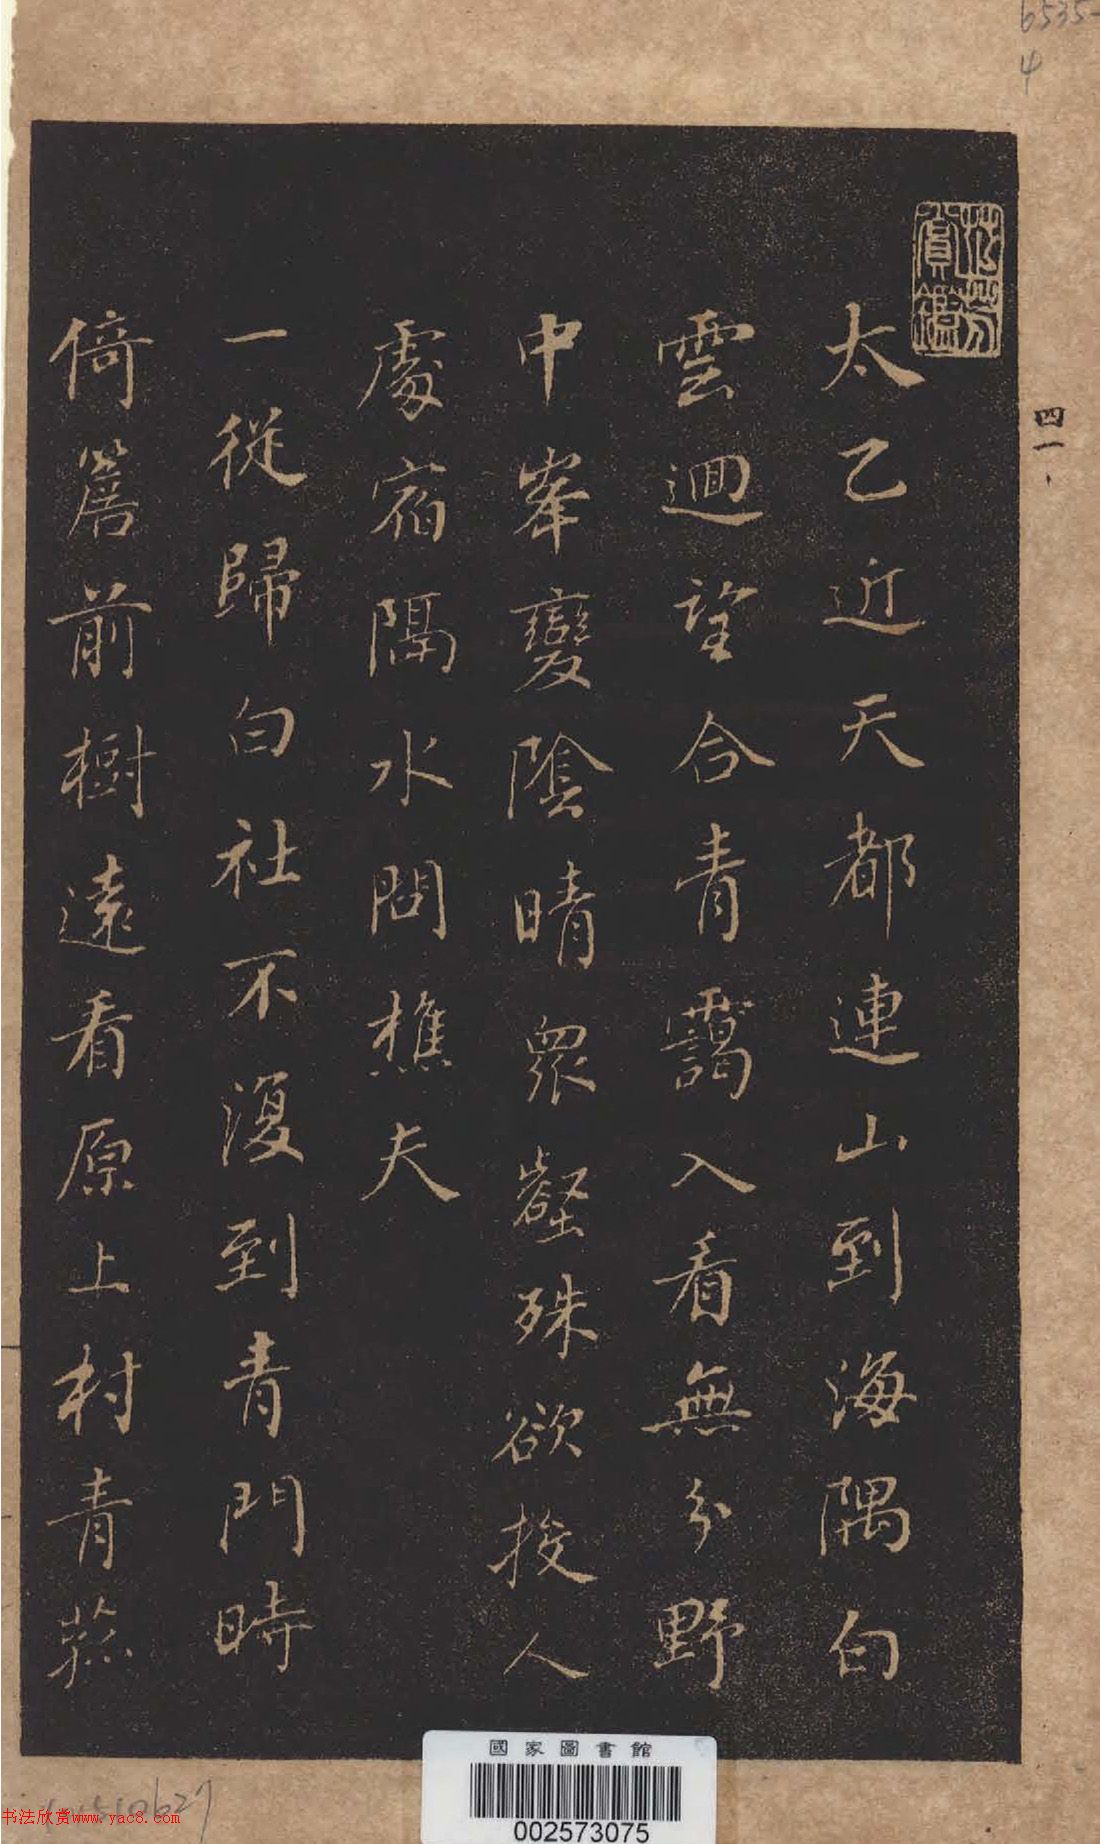 太乙近天都連山到海隅白
雲迴望合青靄入看無分野
中峯變陰晴衆壑殊欲投人
處宿隔水問樵夫
一從歸白社不復到青門時
倚簷前樹遠看原上村青菰
賞鑑
四一
6535-
4
國家圖書館
002573075
书法欣赏www.yac8.com